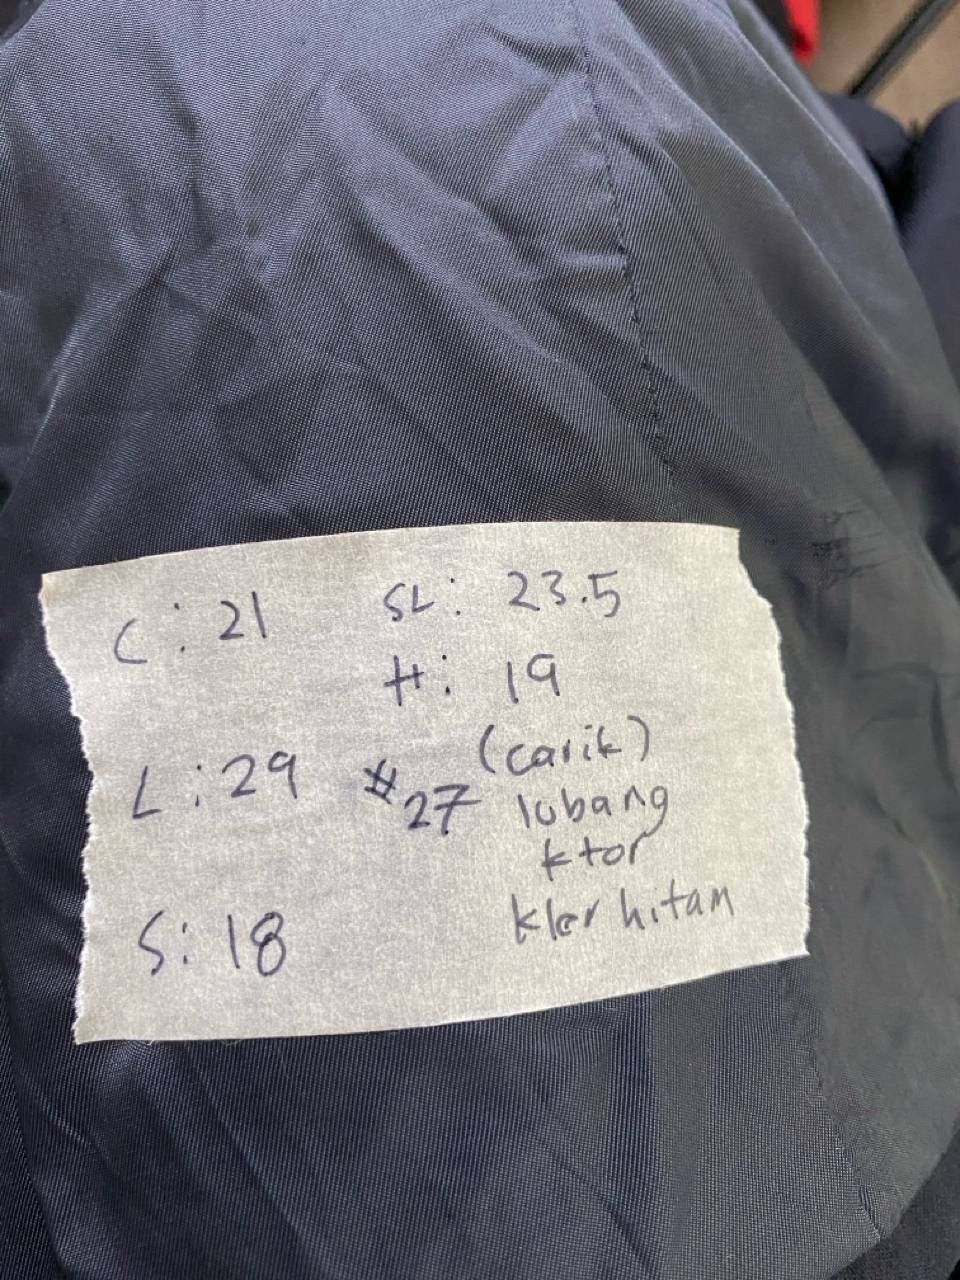 C: 21 SL: 23.5
H: 19
L: 29 #27 (carik)
lubang
ktor
S: 18 kler hitam